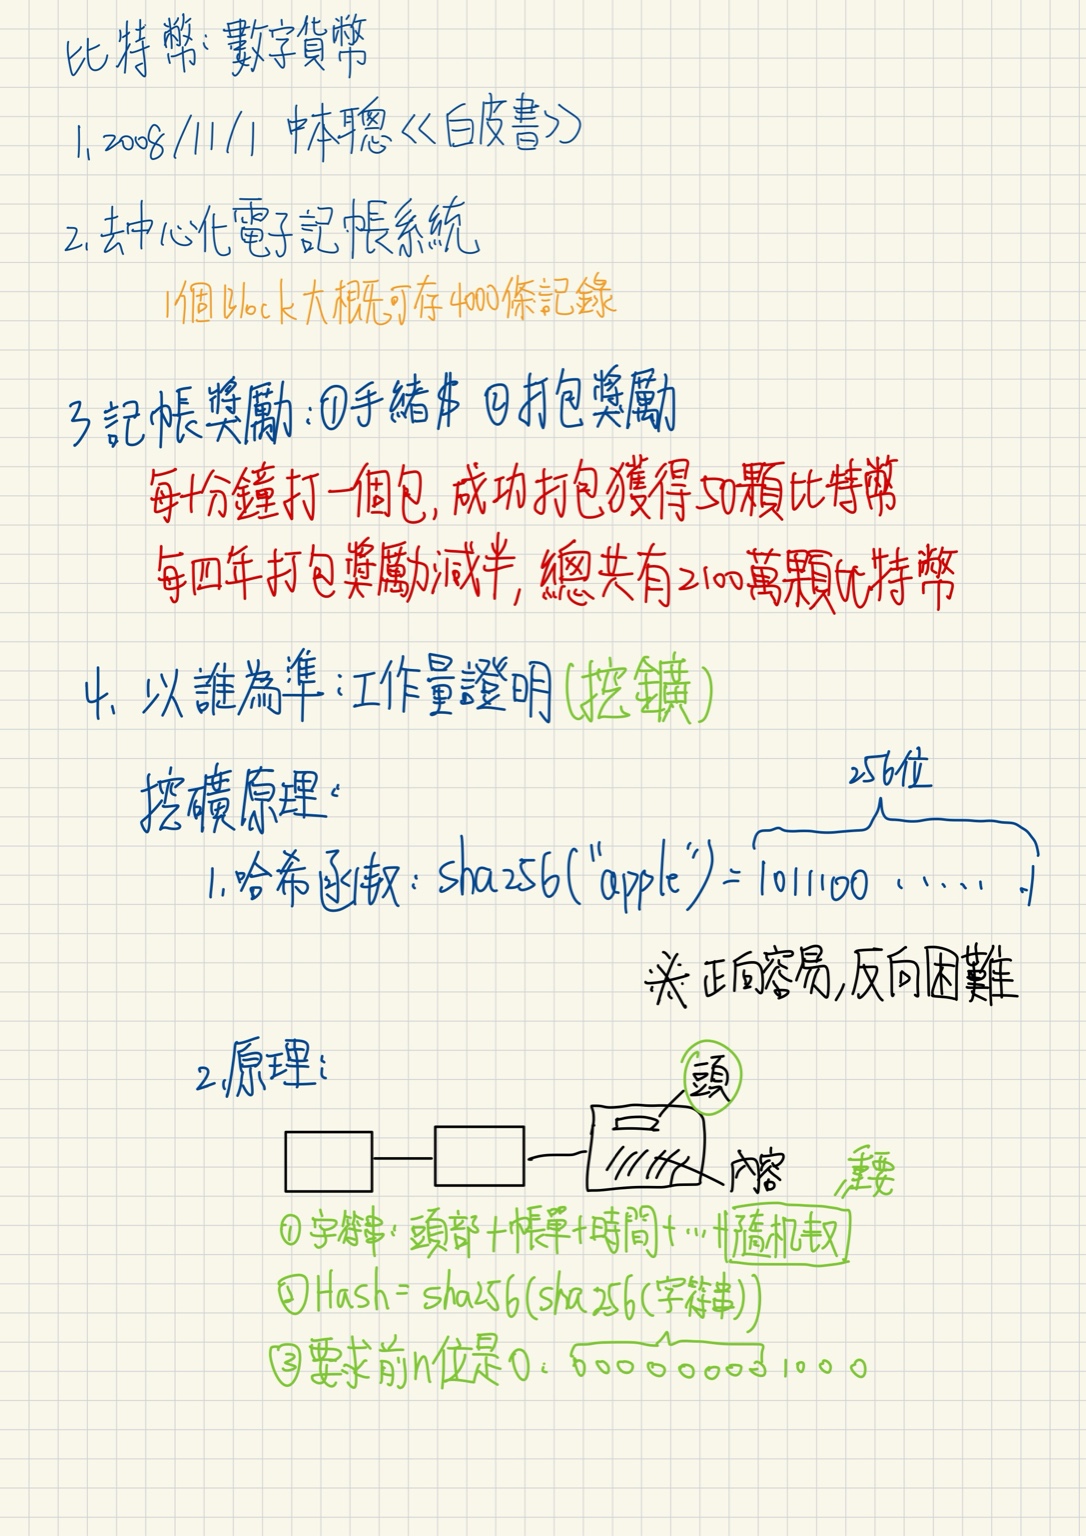 比特幣：數字貨幣
1. 2008/11/1 中本聰<<白皮書>>
2. 去中心化電子記帳系統
1個Block大概可存4000條記錄
3 記帳獎勵：①手續$ ②打包獎勵
每十分鐘打一個包，成功打包獲得50顆比特幣
每四年打包獎勵減半，總共有2100萬顆比特幣
4. 以誰為準：工作量證明(挖鑛)
256位
挖礦原理：
1. 哈希函数：sha256("apple")=1011100 ...... 1
※ 正向容易，反向困難
2. 原理：
頭
內容
重要
①字符串：頭部+帳單+時間+...+隨机数
②Hash = sha256(sha256(字符串))
③要求前n位是0：0000000001000